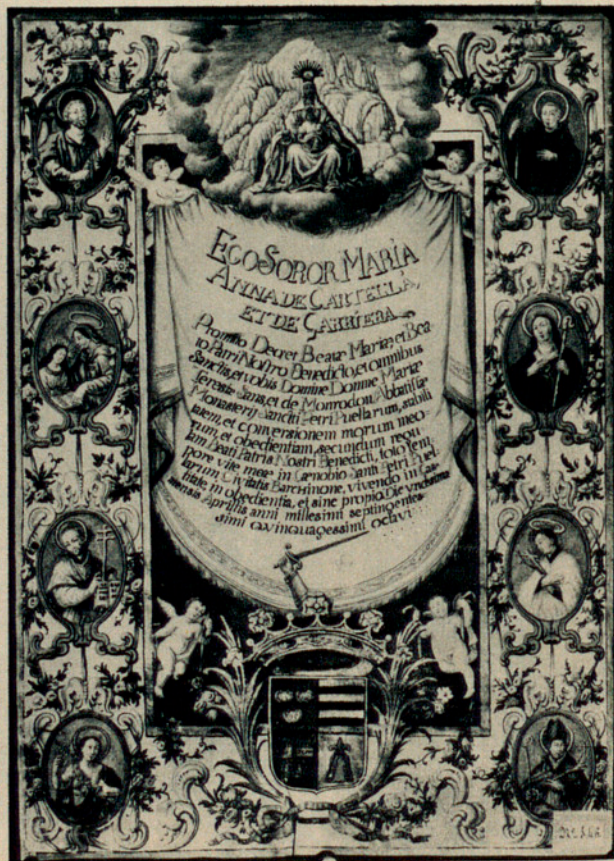 EGO SOROR MARIA
ANNA DE CARTELLA
ET DE ÇARRIERA
Promitto Decret Beatæ Mariæ, et Bea
to Patri Nostro Benedicto, et omnibus
Sanctis, et vobis Domine Domne Mariæ
Teresiæ Sans, et de Monrodon, Abbatissæ
Monasterij Sancti Petri Puellarum, stabili
tatem, et conversionem morum meo
rum, et obedientiam, secundum regu
lam Beati Patris Nostri Benedicti, toto tem
pore vite meæ in Cænobio Santi Petri Puel
larum Civitatis Barchinone, vivendo in Cas
titate, in obedientia, et sine propio. Die
mensis Aprilis anni millesimi septingentes
simi qvinquagessimi octavi